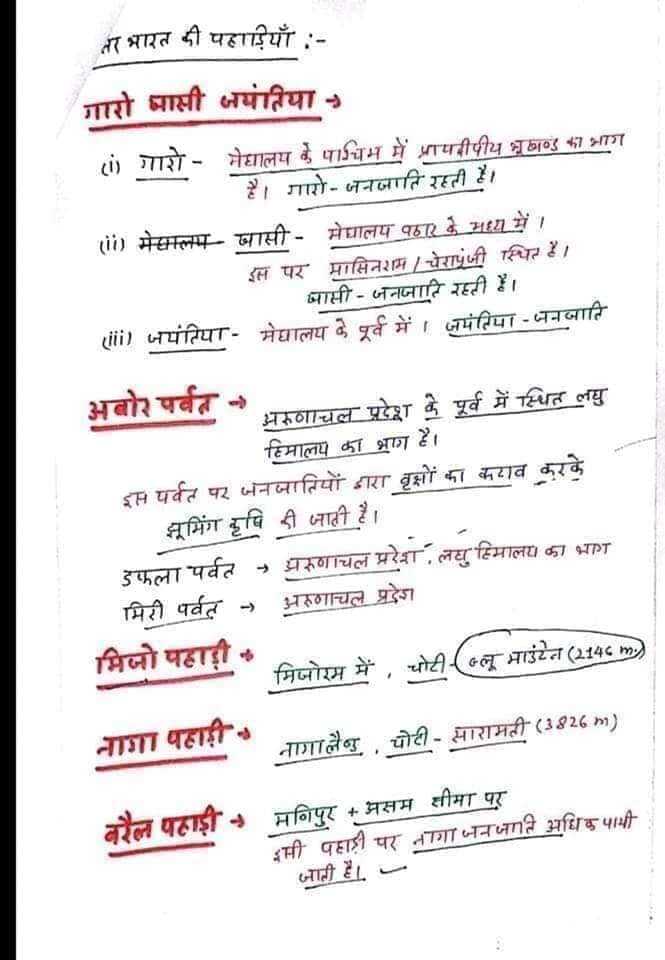 तर भारत की पहाड़ियाँ :-
गारो खासी जयंतिया →
(i) गारो - मेघालय के पश्चिम में प्रायद्वीपीय भूखण्ड का भाग
है। गारो - जनजाति रहती है।
(ii) मेघालय खासी - मेघालय पठार के मध्य में ।
इस पर मासिनराम / चेरापूंजी स्थित है।
खासी - जनजाति रहती है।
(iii) जयंतिया - मेघालय के पूर्व में । जयंतिया - जनजाति
अबोर पर्वत → अरुणाचल प्रदेश के पूर्व में स्थित लघु
हिमालय का भाग है।
इस पर्वत पर जनजातियों द्वारा वृक्षों का कटाव करके
झूमिंग कृषि की जाती है।
डफला पर्वत → अरुणाचल प्रदेश, लघु हिमालय का भाग
मिरी पर्वत → अरुणाचल प्रदेश
मिजो पहाड़ी → मिजोरम में , चोटी - ब्लू माउंटेन (2146 m)
नागा पहाड़ी → नागालैण्ड , चोटी - सारामती (3826 m)
बरैल पहाड़ी → मणिपुर + असम सीमा पर
इसी पहाड़ी पर नागा जनजाति अधिक पायी
जाती है।